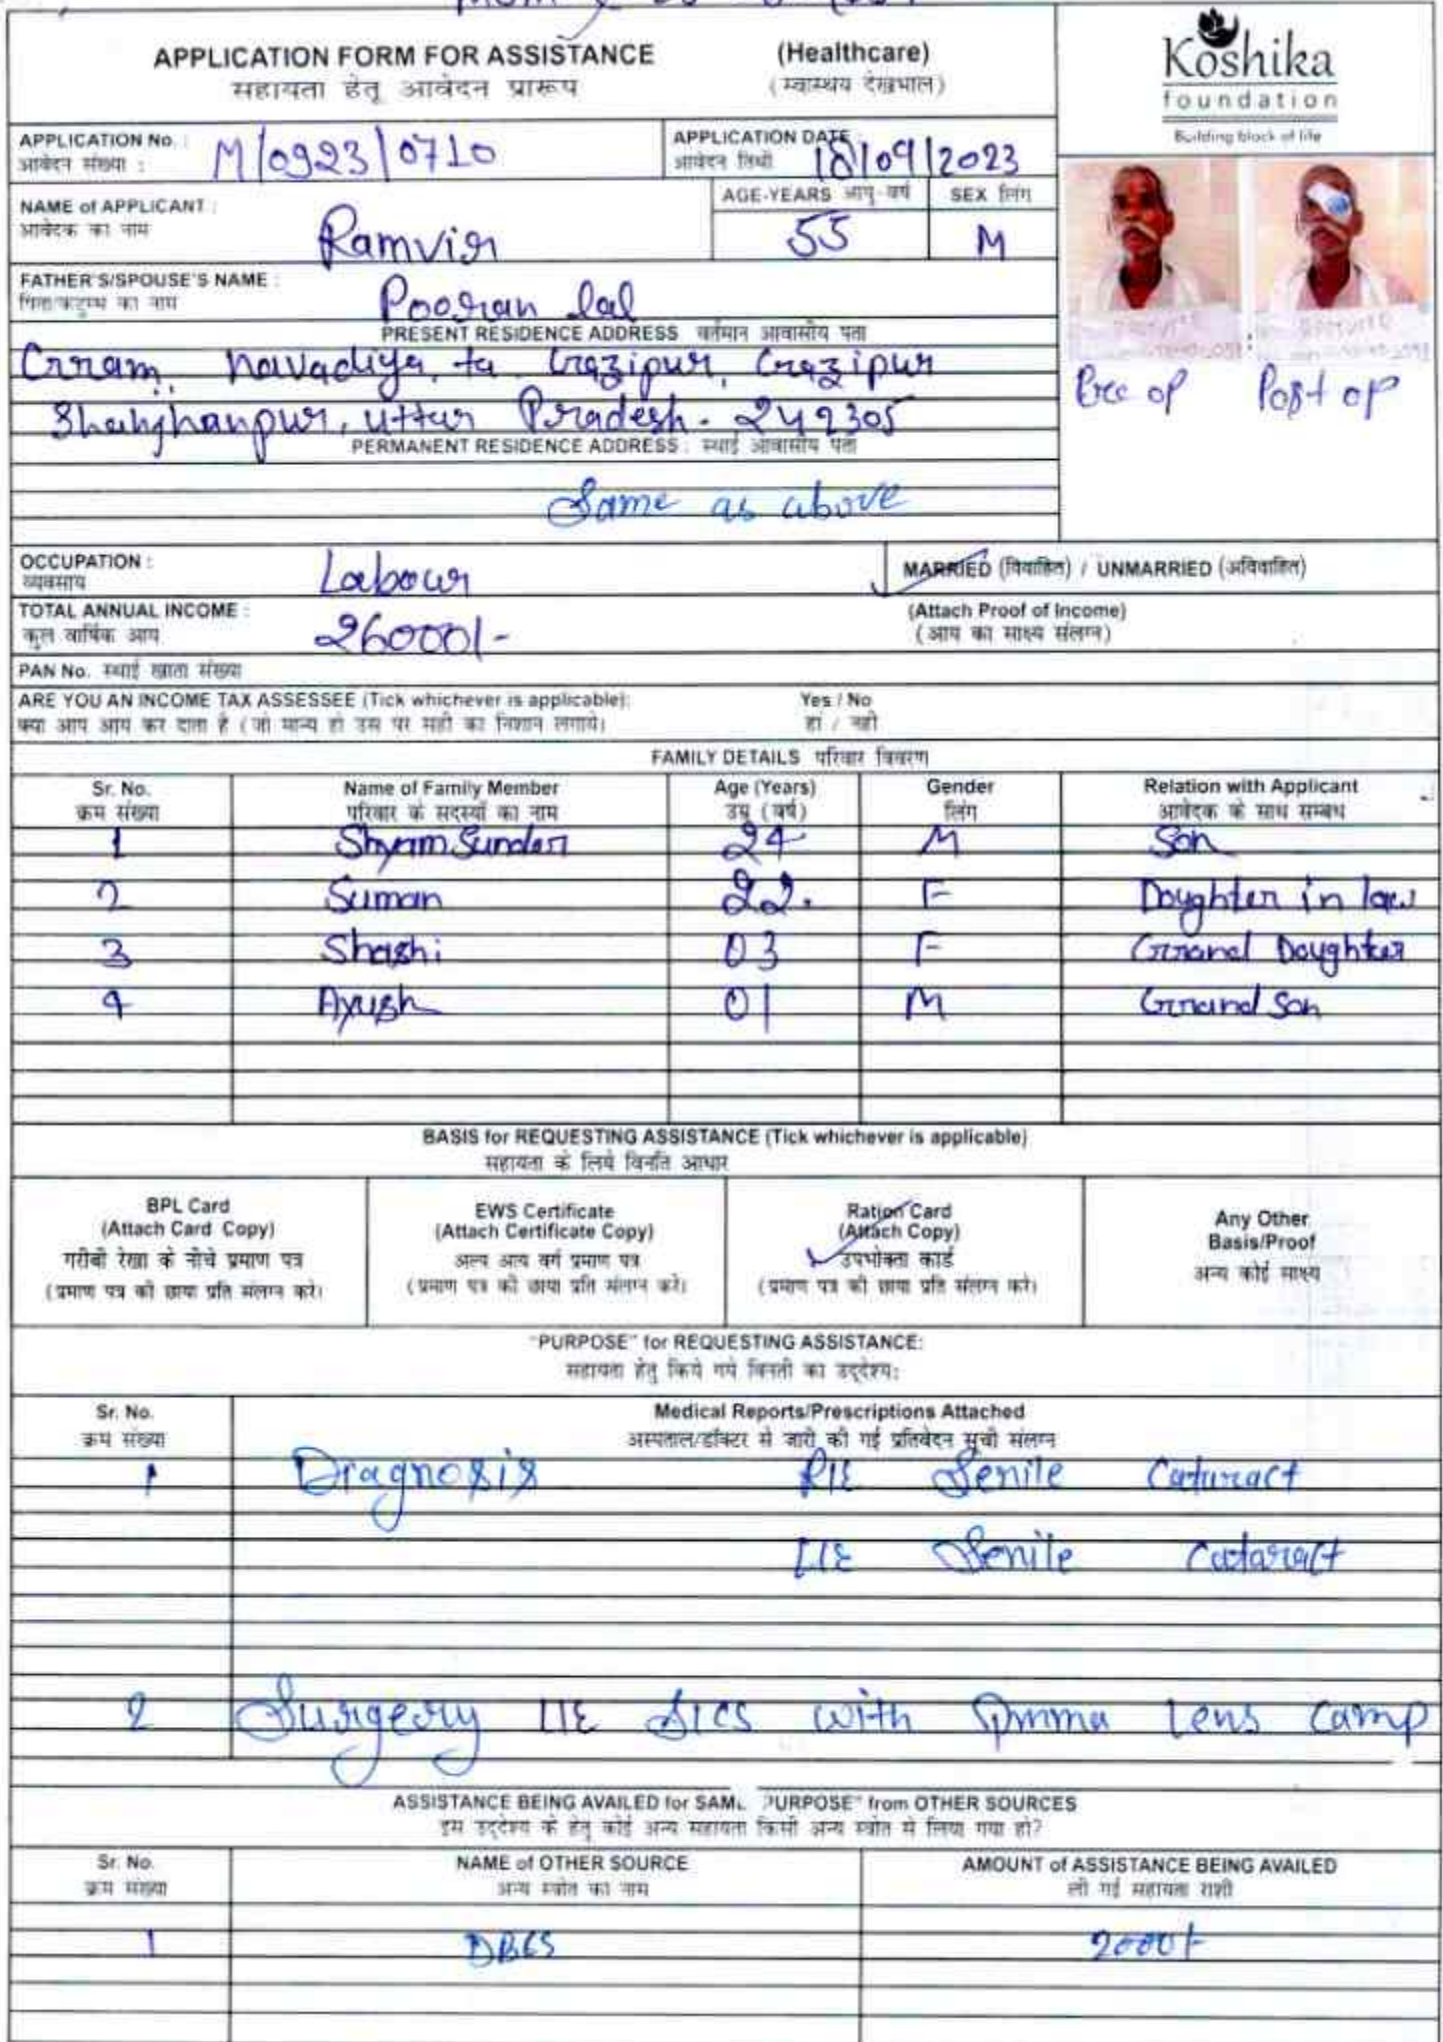 APPLICATION FORM FOR ASSISTANCE (Healthcare)
सहायता हेतू आवेदन प्रारूप (स्वास्थय देखभाल)
Koshika
foundation
Building block of life
APPLICATION No. : M/0923/0710
आवेदन संख्या :
APPLICATION DATE 18/09/2023
आवेदन तिथी
NAME of APPLICANT : Ramvir
आवेदक का नाम
AGE-YEARS आयु-वर्ष 55
SEX लिंग M
FATHER'S/SPOUSE'S NAME : Pooran lal
पिता/कटुम्ब का नाम
PRESENT RESIDENCE ADDRESS वर्तमान आवासीय पता
Gram, Navadiya, ta Gazipur, Gazipur
Shahjhanpur, Uttar Pradesh - 242305
Pree op Post op
PERMANENT RESIDENCE ADDRESS : स्थाई आवासीय पता
Same as above
OCCUPATION : Labour
व्यवसाय
MARRIED (विवाहित) / UNMARRIED (अविवाहित)
TOTAL ANNUAL INCOME : 26000/-
कुल वार्षिक आय
(Attach Proof of Income)
(आय का साक्ष्य संलग्न)
PAN No. स्थाई खाता संख्या
ARE YOU AN INCOME TAX ASSESSEE (Tick whichever is applicable): Yes / No
क्या आप आय कर दाता है (जो मान्य हो उस पर सही का निशान लगाये) हां / नही
FAMILY DETAILS परिवार विवरण
Sr. No. Name of Family Member Age (Years) Gender Relation with Applicant
क्रम संख्या परिवार के सदस्यों का नाम उम्र (वर्ष) लिंग आवेदक के साथ सम्बध
1 Shyam Sundar 24 M Son
2 Suman 22. F Doughter in law
3 Shashi 03 F Grrand Doughter
4 Ayush 01 M Grrand Son
BASIS for REQUESTING ASSISTANCE (Tick whichever is applicable)
सहायता के लिये विनति आधार
BPL Card
(Attach Card Copy)
गरीबी रेखा के नीचे प्रमाण पत्र
(प्रमाण पत्र की छाया प्रति संलग्न करे)
EWS Certificate
(Attach Certificate Copy)
अल्प आय वर्ग प्रमाण पत्र
(प्रमाण पत्र की छाया प्रति संलग्न करे)
Ration Card
(Attach Copy)
उपभोक्ता कार्ड
(प्रमाण पत्र की छाया प्रति संलग्न करे)
Any Other
Basis/Proof
अन्य कोई साक्ष्य
"PURPOSE" for REQUESTING ASSISTANCE:
सहायता हेतु किये गये विनती का उद्देश्य:
Sr. No. Medical Reports/Prescriptions Attached
क्रम संख्या अस्पताल/डॉक्टर से जारी की गई प्रतिवेदन सूची संलग्न
1 Diagnosis R/E Senile Cataract
L/E Senile Cataract
2 Surgery L/E SICS with Pmma Lens Camp
ASSISTANCE BEING AVAILED for SAME "PURPOSE" from OTHER SOURCES
इस उद्देश्य के हेतु कोई अन्य सहायता किसी अन्य स्त्रोत से लिया गया हो?
Sr. No. NAME of OTHER SOURCE AMOUNT of ASSISTANCE BEING AVAILED
क्रम संख्या अन्य स्त्रोत का नाम ली गई सहायता राशी
1 DBCS 2000/-